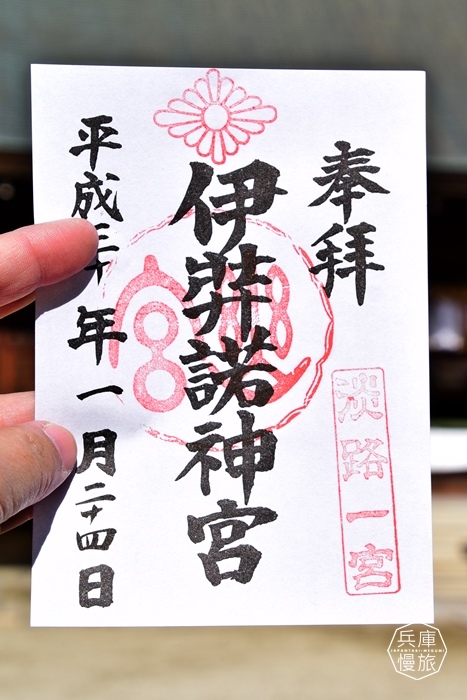 奉拝
淡路一宮
伊弉諾神宮
平成三十年一月二十四日
兵庫
慢旅